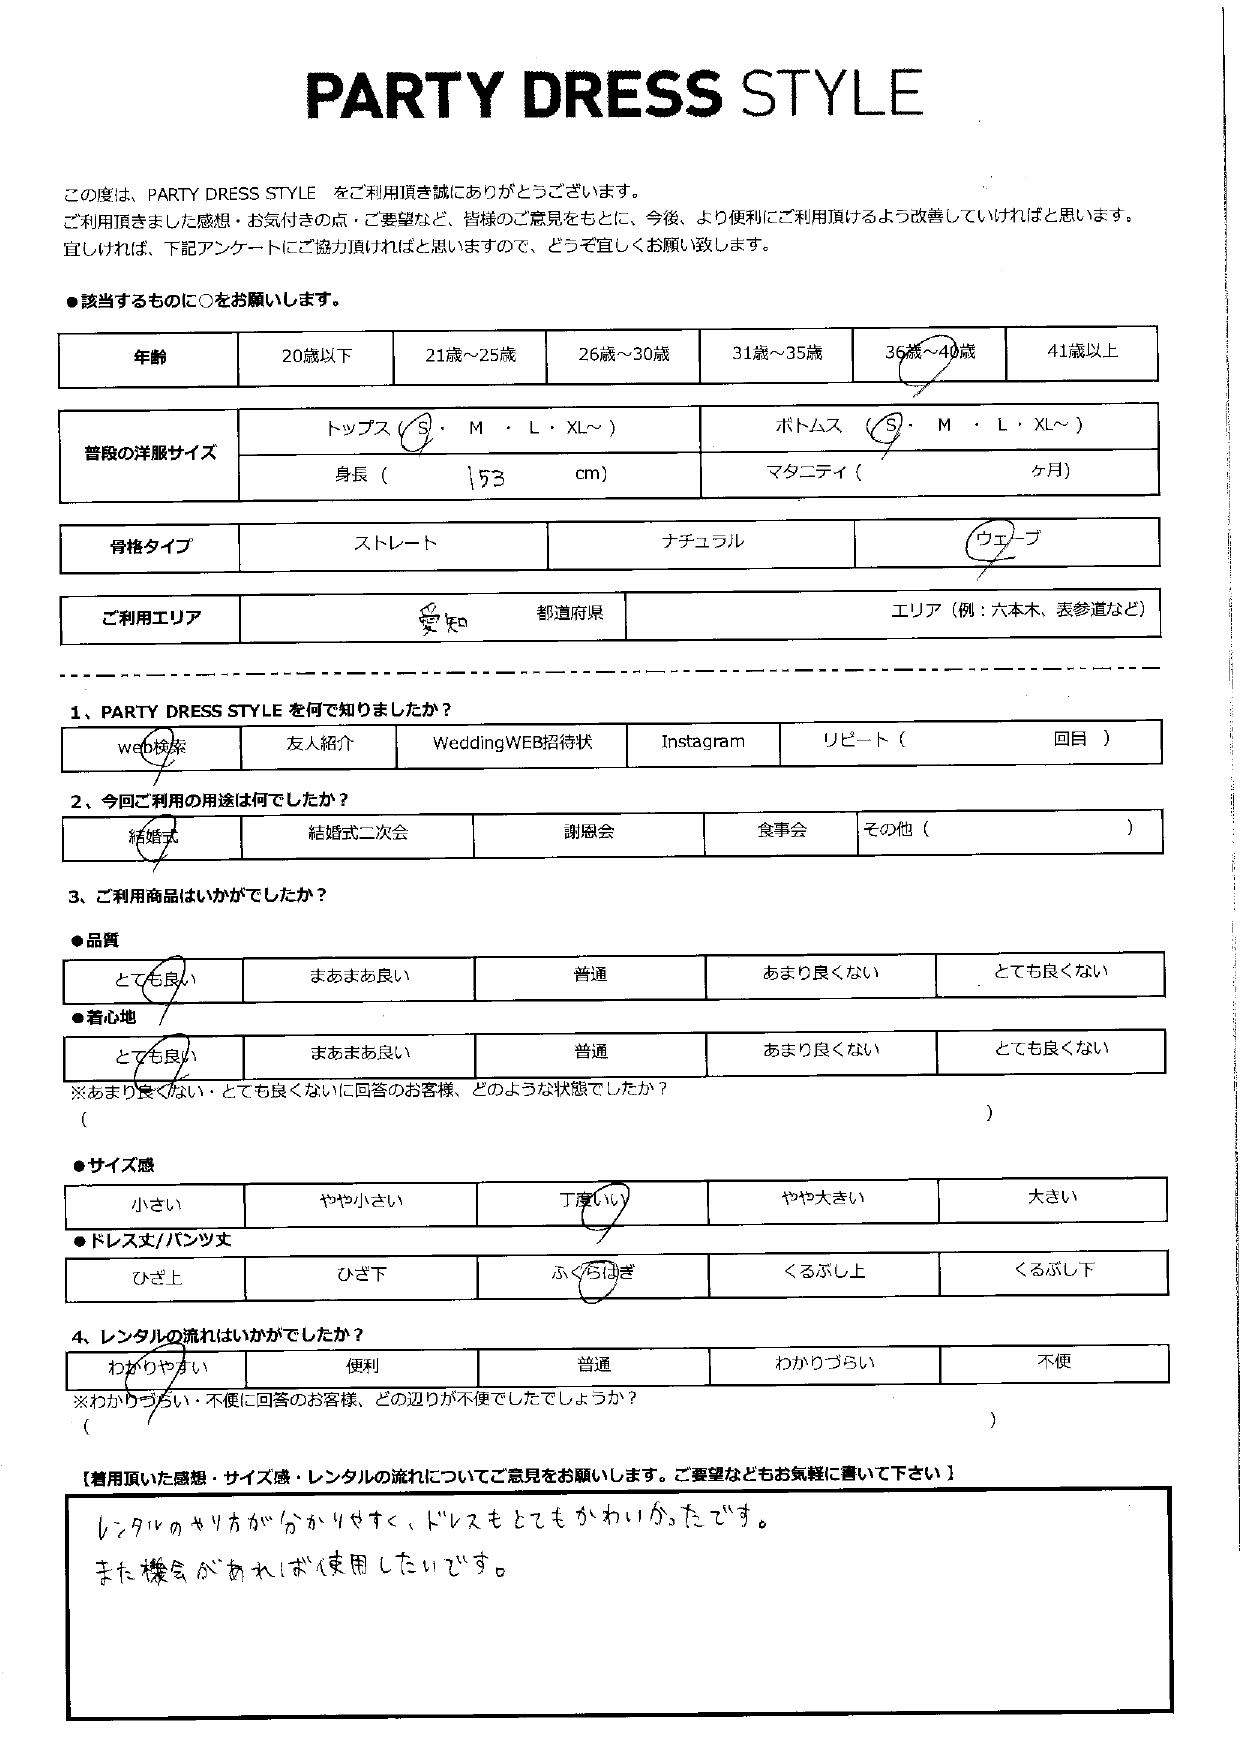 PARTY DRESS STYLE
この度は、PARTY DRESS STYLE をご利用頂き誠にありがとうございます。
ご利用頂きました感想・お気付きの点・ご要望など、皆様のご意見をもとに、今後、より便利にご利用頂けるよう改善していければと思います。
宜しければ、下記アンケートにご協力頂ければと思いますので、どうぞ宜しくお願い致します。
●該当するものに○をお願いします。
年齢 20歳以下 21歳～25歳 26歳～30歳 31歳～35歳 36歳～40歳 41歳以上
普段の洋服サイズ
トップス ( S ・ M ・ L ・ XL～ ) ボトムス ( S ・ M ・ L ・ XL～ )
身長 ( 153 cm) マタニティ ( ヶ月)
骨格タイプ ストレート ナチュラル ウェーブ
ご利用エリア 愛知 都道府県 エリア（例：六本木、表参道など）
1、PARTY DRESS STYLE を何で知りましたか？
web検索 友人紹介 WeddingWEB招待状 Instagram リピート ( 回目 )
2、今回ご利用の用途は何でしたか？
結婚式 結婚式二次会 謝恩会 食事会 その他 ( )
3、ご利用商品はいかがでしたか？
●品質
とても良い まあまあ良い 普通 あまり良くない とても良くない
●着心地
とても良い まあまあ良い 普通 あまり良くない とても良くない
※あまり良くない・とても良くないに回答のお客様、どのような状態でしたか？
( )
●サイズ感
小さい やや小さい 丁度いい やや大きい 大きい
●ドレス丈/パンツ丈
ひざ上 ひざ下 ふくらはぎ くるぶし上 くるぶし下
4、レンタルの流れはいかがでしたか？
わかりやすい 便利 普通 わかりづらい 不便
※わかりづらい・不便に回答のお客様、どの辺りが不便でしたでしょうか？
( )
【着用頂いた感想・サイズ感・レンタルの流れについてご意見をお願いします。ご要望などもお気軽に書いて下さい 】
レンタルのやり方が分かりやすく、ドレスもとてもかわいかったです。
また機会があれば使用したいです。